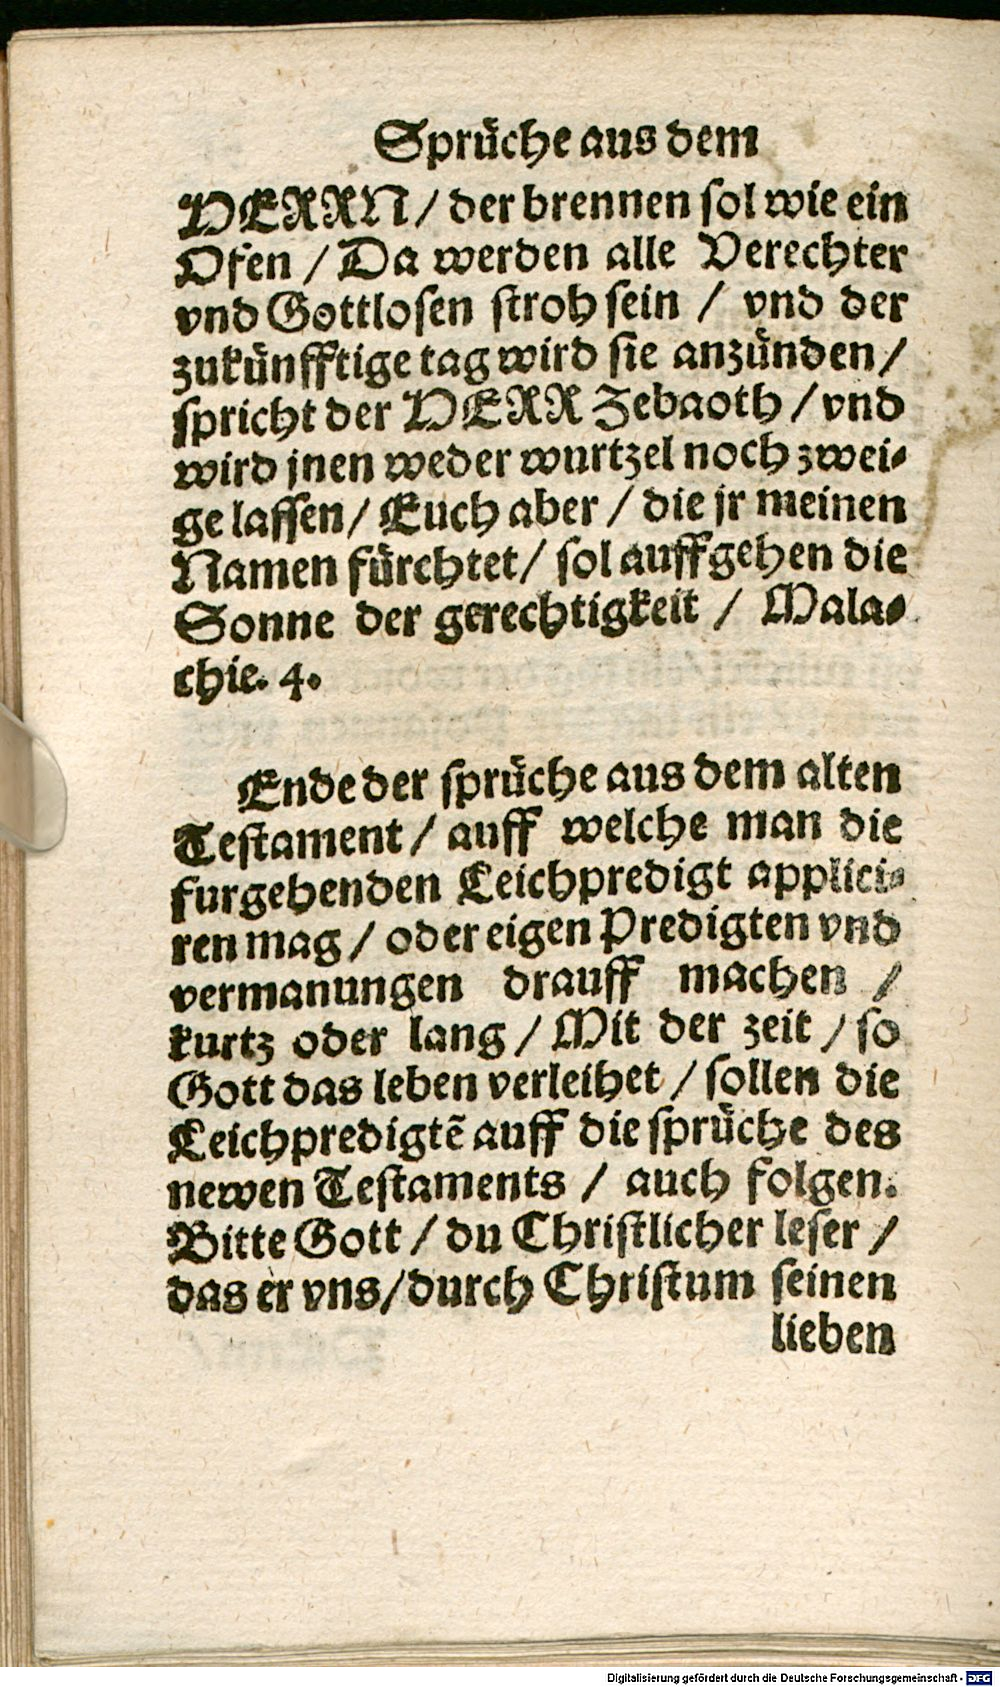 Sprüche aus dem
HERRN / der brennen sol wie ein
Ofen / Da werden alle Verechter
vnd Gottlosen stroh sein / vnd der
zukünfftige tag wird sie anzünden /
spricht der HERR Zebaoth / vnd
wird jnen weder wurtzel noch zwei-
ge lassen / Euch aber / die jr meinen
Namen fürchtet / sol auffgehen die
Sonne der gerechtigkeit / Mala-
chie. 4.
Ende der sprüche aus dem alten
Testament / auff welche man die
furgehenden Leichpredigt applici-
ren mag / oder eigen Predigten vnd
vermanungen drauff machen /
kurtz oder lang / Mit der zeit / so
Gott das leben verleihet / sollen die
Leichpredigtẽ auff die sprüche des
newen Testaments / auch folgen.
Bitte Gott / du Christlicher leser /
das er vns / durch Christum seinen
lieben
Digitalisierung gefördert durch die Deutsche Forschungsgemeinschaft - DFG